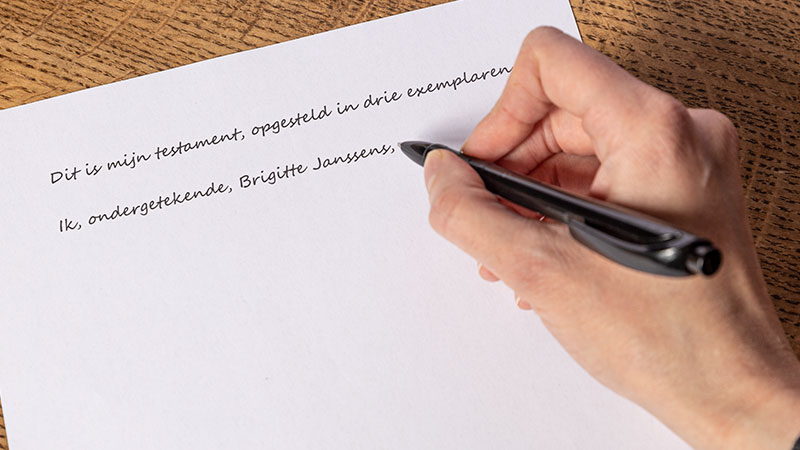 Dit is mijn testament, opgesteld in drie exemplaren
Ik, ondergetekende, Brigitte Janssens,